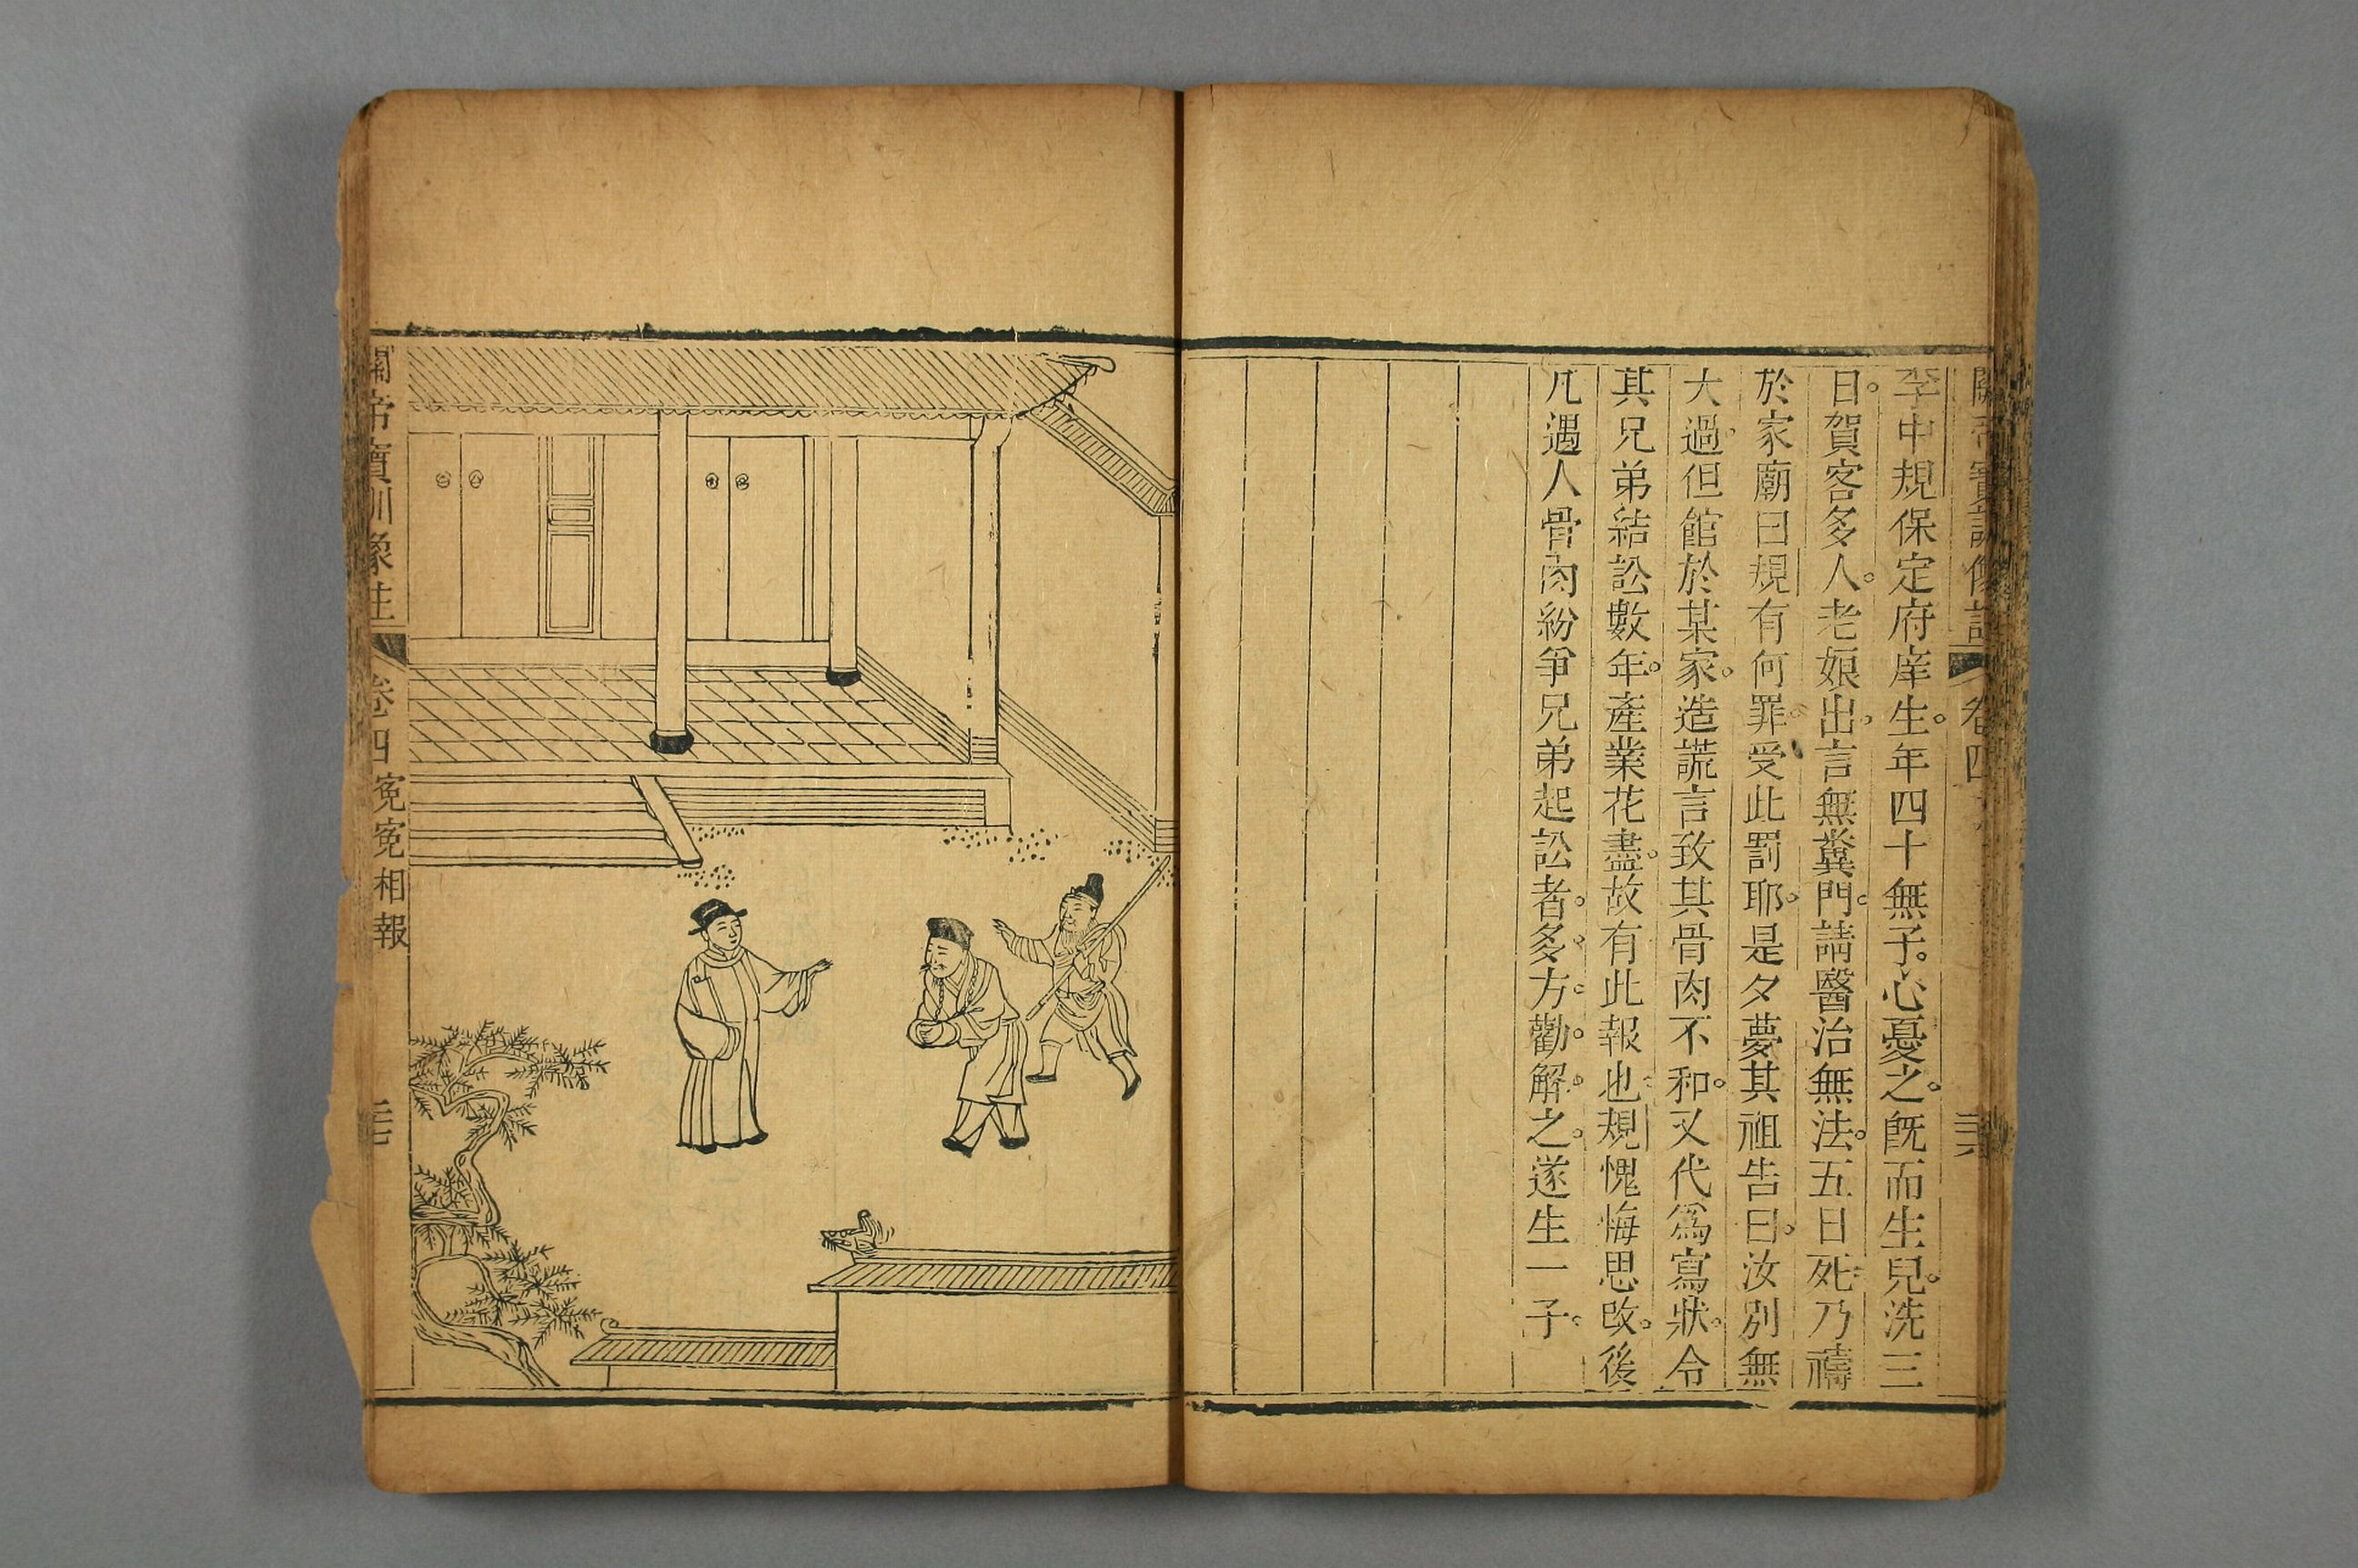 關帝寶訓像註 卷四 三六
李中規保定府庠生。年四十無子。心憂之。旣而生兒。洗三
日。賀客多人。老娘出。言無糞門。請醫治無法。五日死乃禱
於家廟曰規有何罪。受此罰耶。是夕夢其祖告曰。汝別無
大過。但館於某家。造謊言致其骨肉不和。又代爲寫狀。令
其兄弟結訟數年。產業花盡。故有此報也規愧悔思改。後
凡遇人骨肉紛爭兄弟起訟者。多。方。勸。解。之。遂生一子。
關帝寶訓像註 卷四 寃寃相報 三七